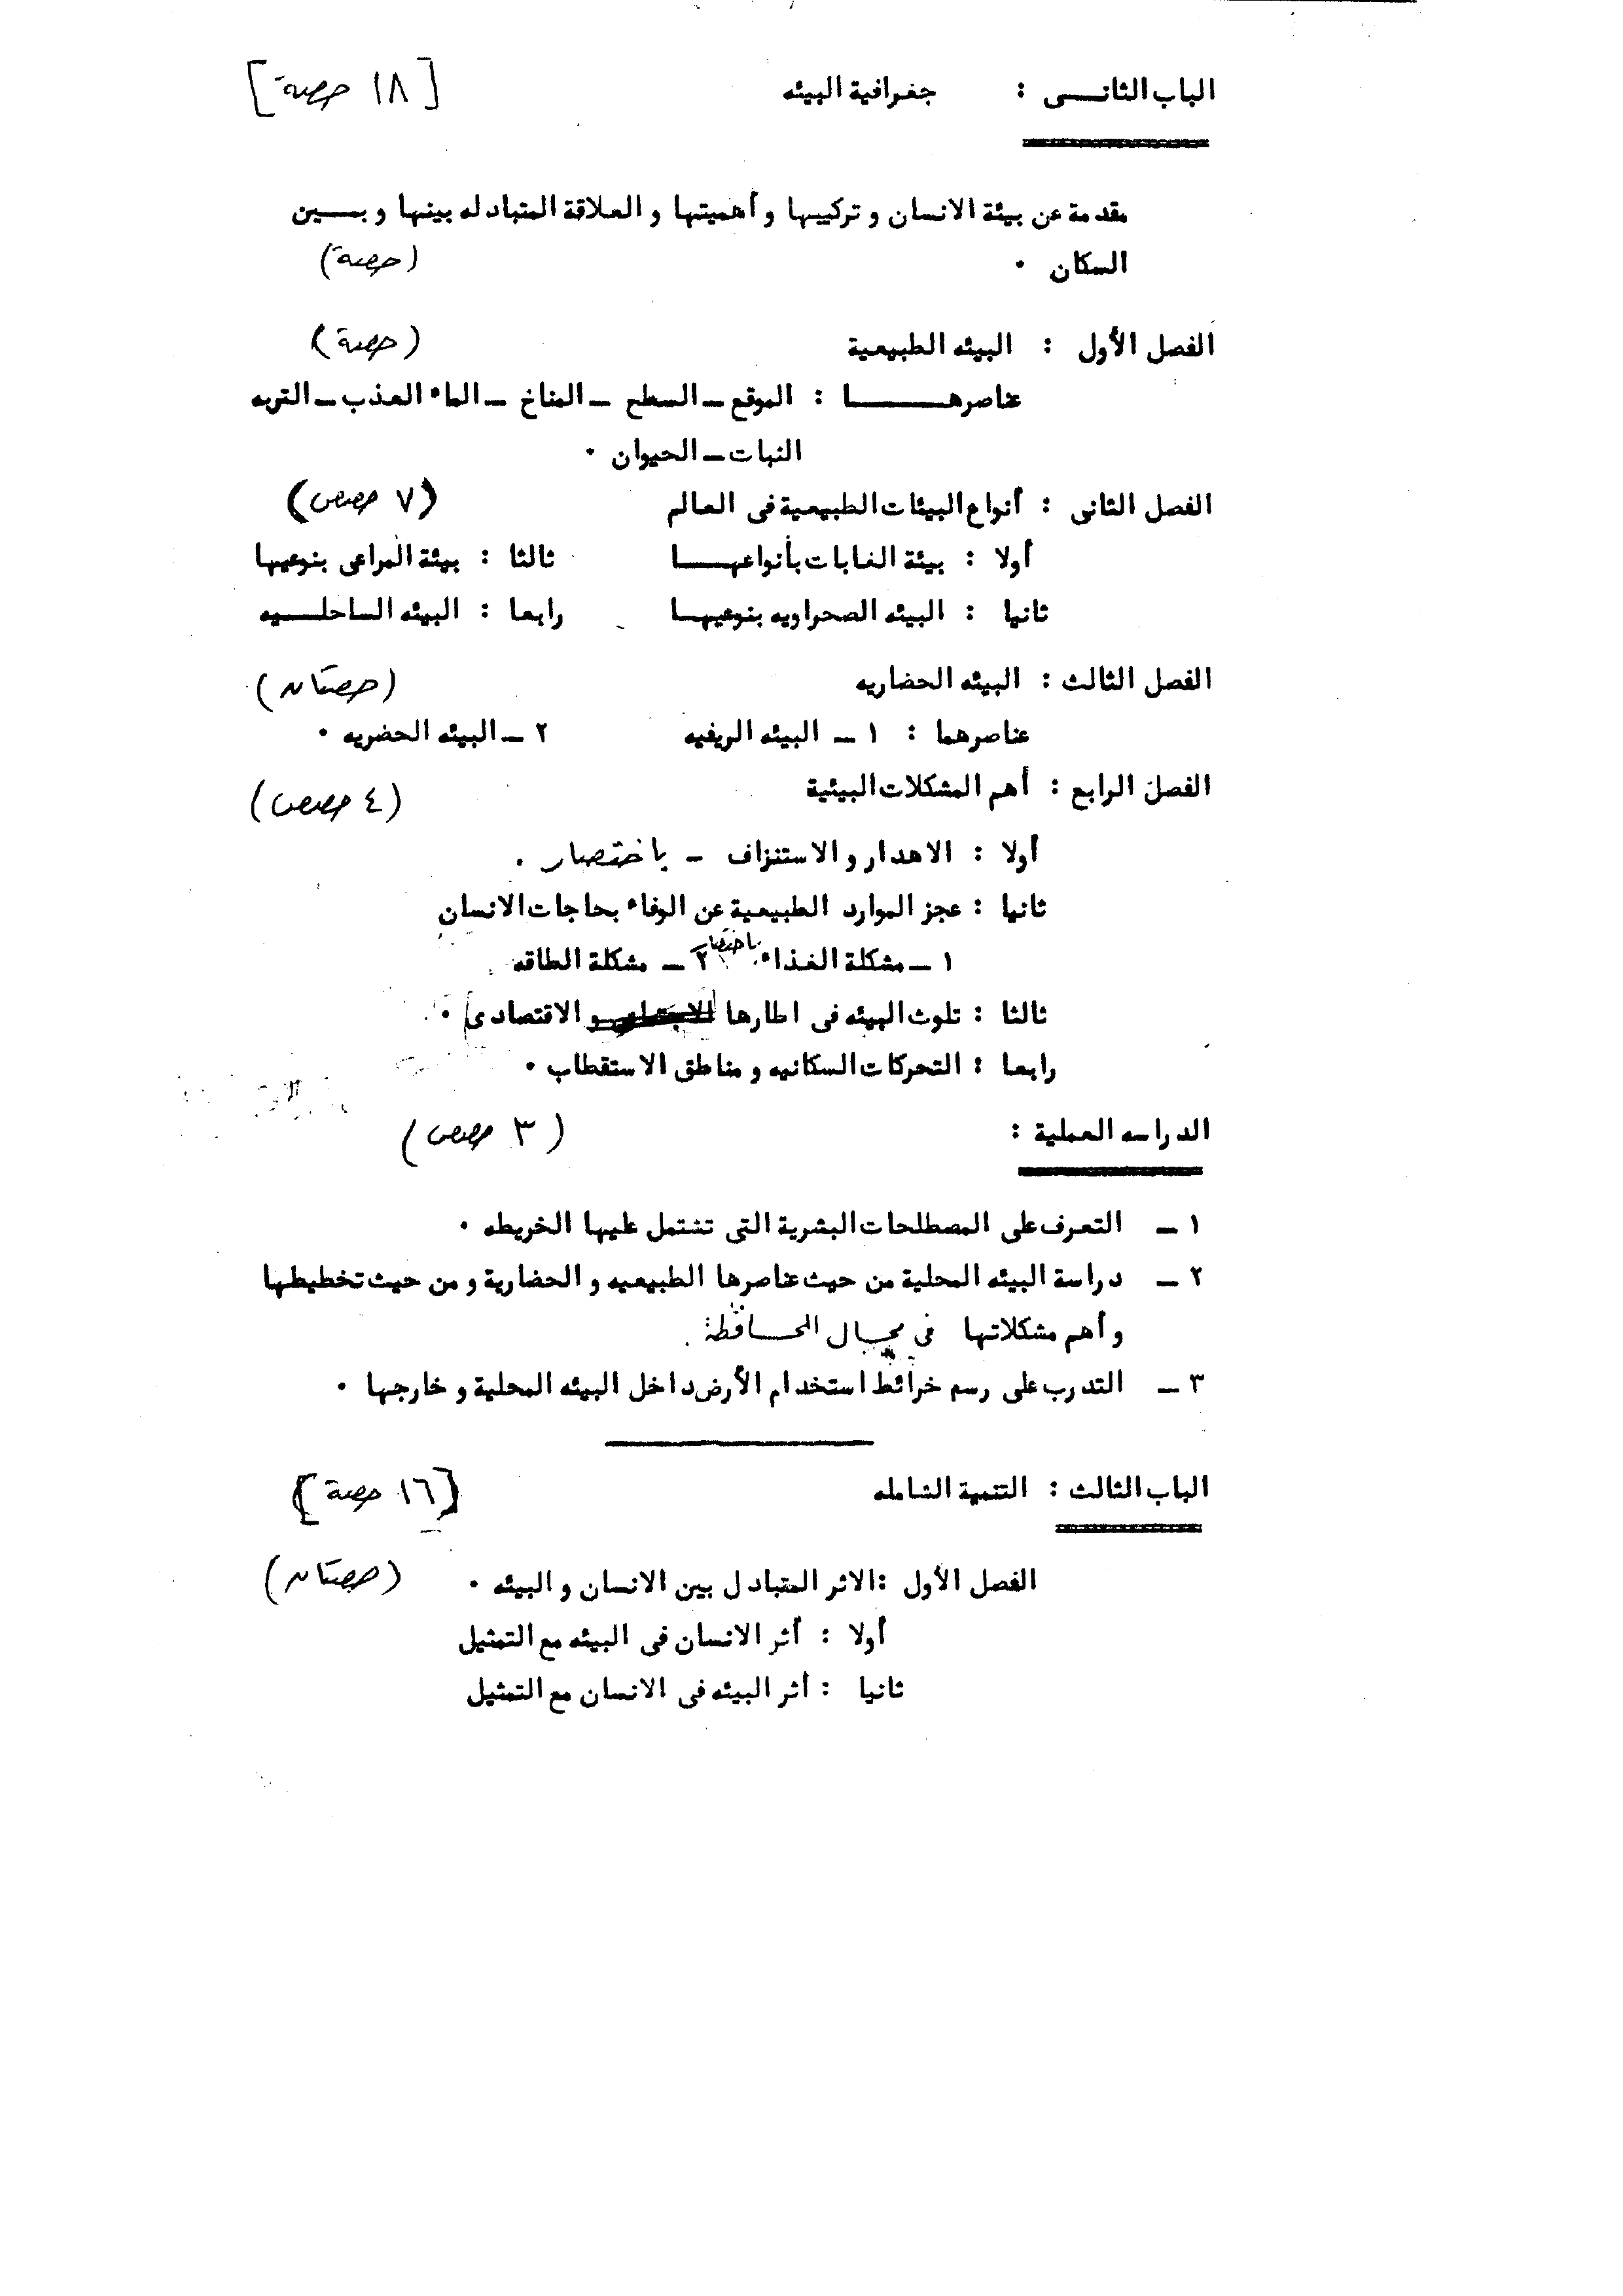 الباب الثانـــى : جغرافية البيئه [ ١٨ حصة ]
مقدمة عن بيئة الانسان وتركيبها وأهميتها والعلاقة المتبادله بينها وبـــين
السكان ٠ (حصة)
الفصل الأول : البيئه الطبيعية (حصة)
عناصرهـــــــا : الموقع ــ السطح ــ المناخ ــ الماء العذب ــ التربه
النبات ــ الحيوان ٠
الفصل الثانى : أنواع البيئات الطبيعية فى العالم (٧ حصص)
أولا : بيئة الغابات بأنواعهــــا ثالثا : بيئة المراعى بنوعيها
ثانيا : البيئه الصحراويه بنوعيهــا رابعا : البيئه الساحلـــيه
الفصل الثالث : البيئه الحضاريه (حصتان)
عناصرهما : ١ ــ البيئه الريفيه ٢ ــ البيئه الحضريه ٠
الفصل الرابع : أهم المشكلات البيئية (٤ حصص)
أولا : الاهدار والاستنزاف - باختصار .
ثانيا : عجز الموارد الطبيعية عن الوفاء بحاجات الانسان
١ ــ مشكلة الغذاء باختصار ٢ ــ مشكلة الطاقه
ثالثا : تلوث البيئه فى اطارها الاجتماعى و الاقتصادى ٠
رابعا : التحركات السكانيه ومناطق الاستقطاب ٠
الدراسه العملية : (٣ حصص)
١ ــ التعرف على المصطلحات البشرية التى تشتمل عليها الخريطه ٠
٢ ــ دراسة البيئه المحلية من حيث عناصرها الطبيعيه والحضارية ومن حيث تخطيطها
وأهم مشكلاتها فى مجال المحافظة .
٣ ــ التدرب على رسم خرائط استخدام الأرض داخل البيئه المحلية وخارجها ٠
الباب الثالث : التنمية الشامله [١٦ حصة]
الفصل الأول : الاثر المتبادل بين الانسان والبيئه ٠ (حصتان)
أولا : أثر الانسان فى البيئه مع التمثيل
ثانيا : أثر البيئه فى الانسان مع التمثيل